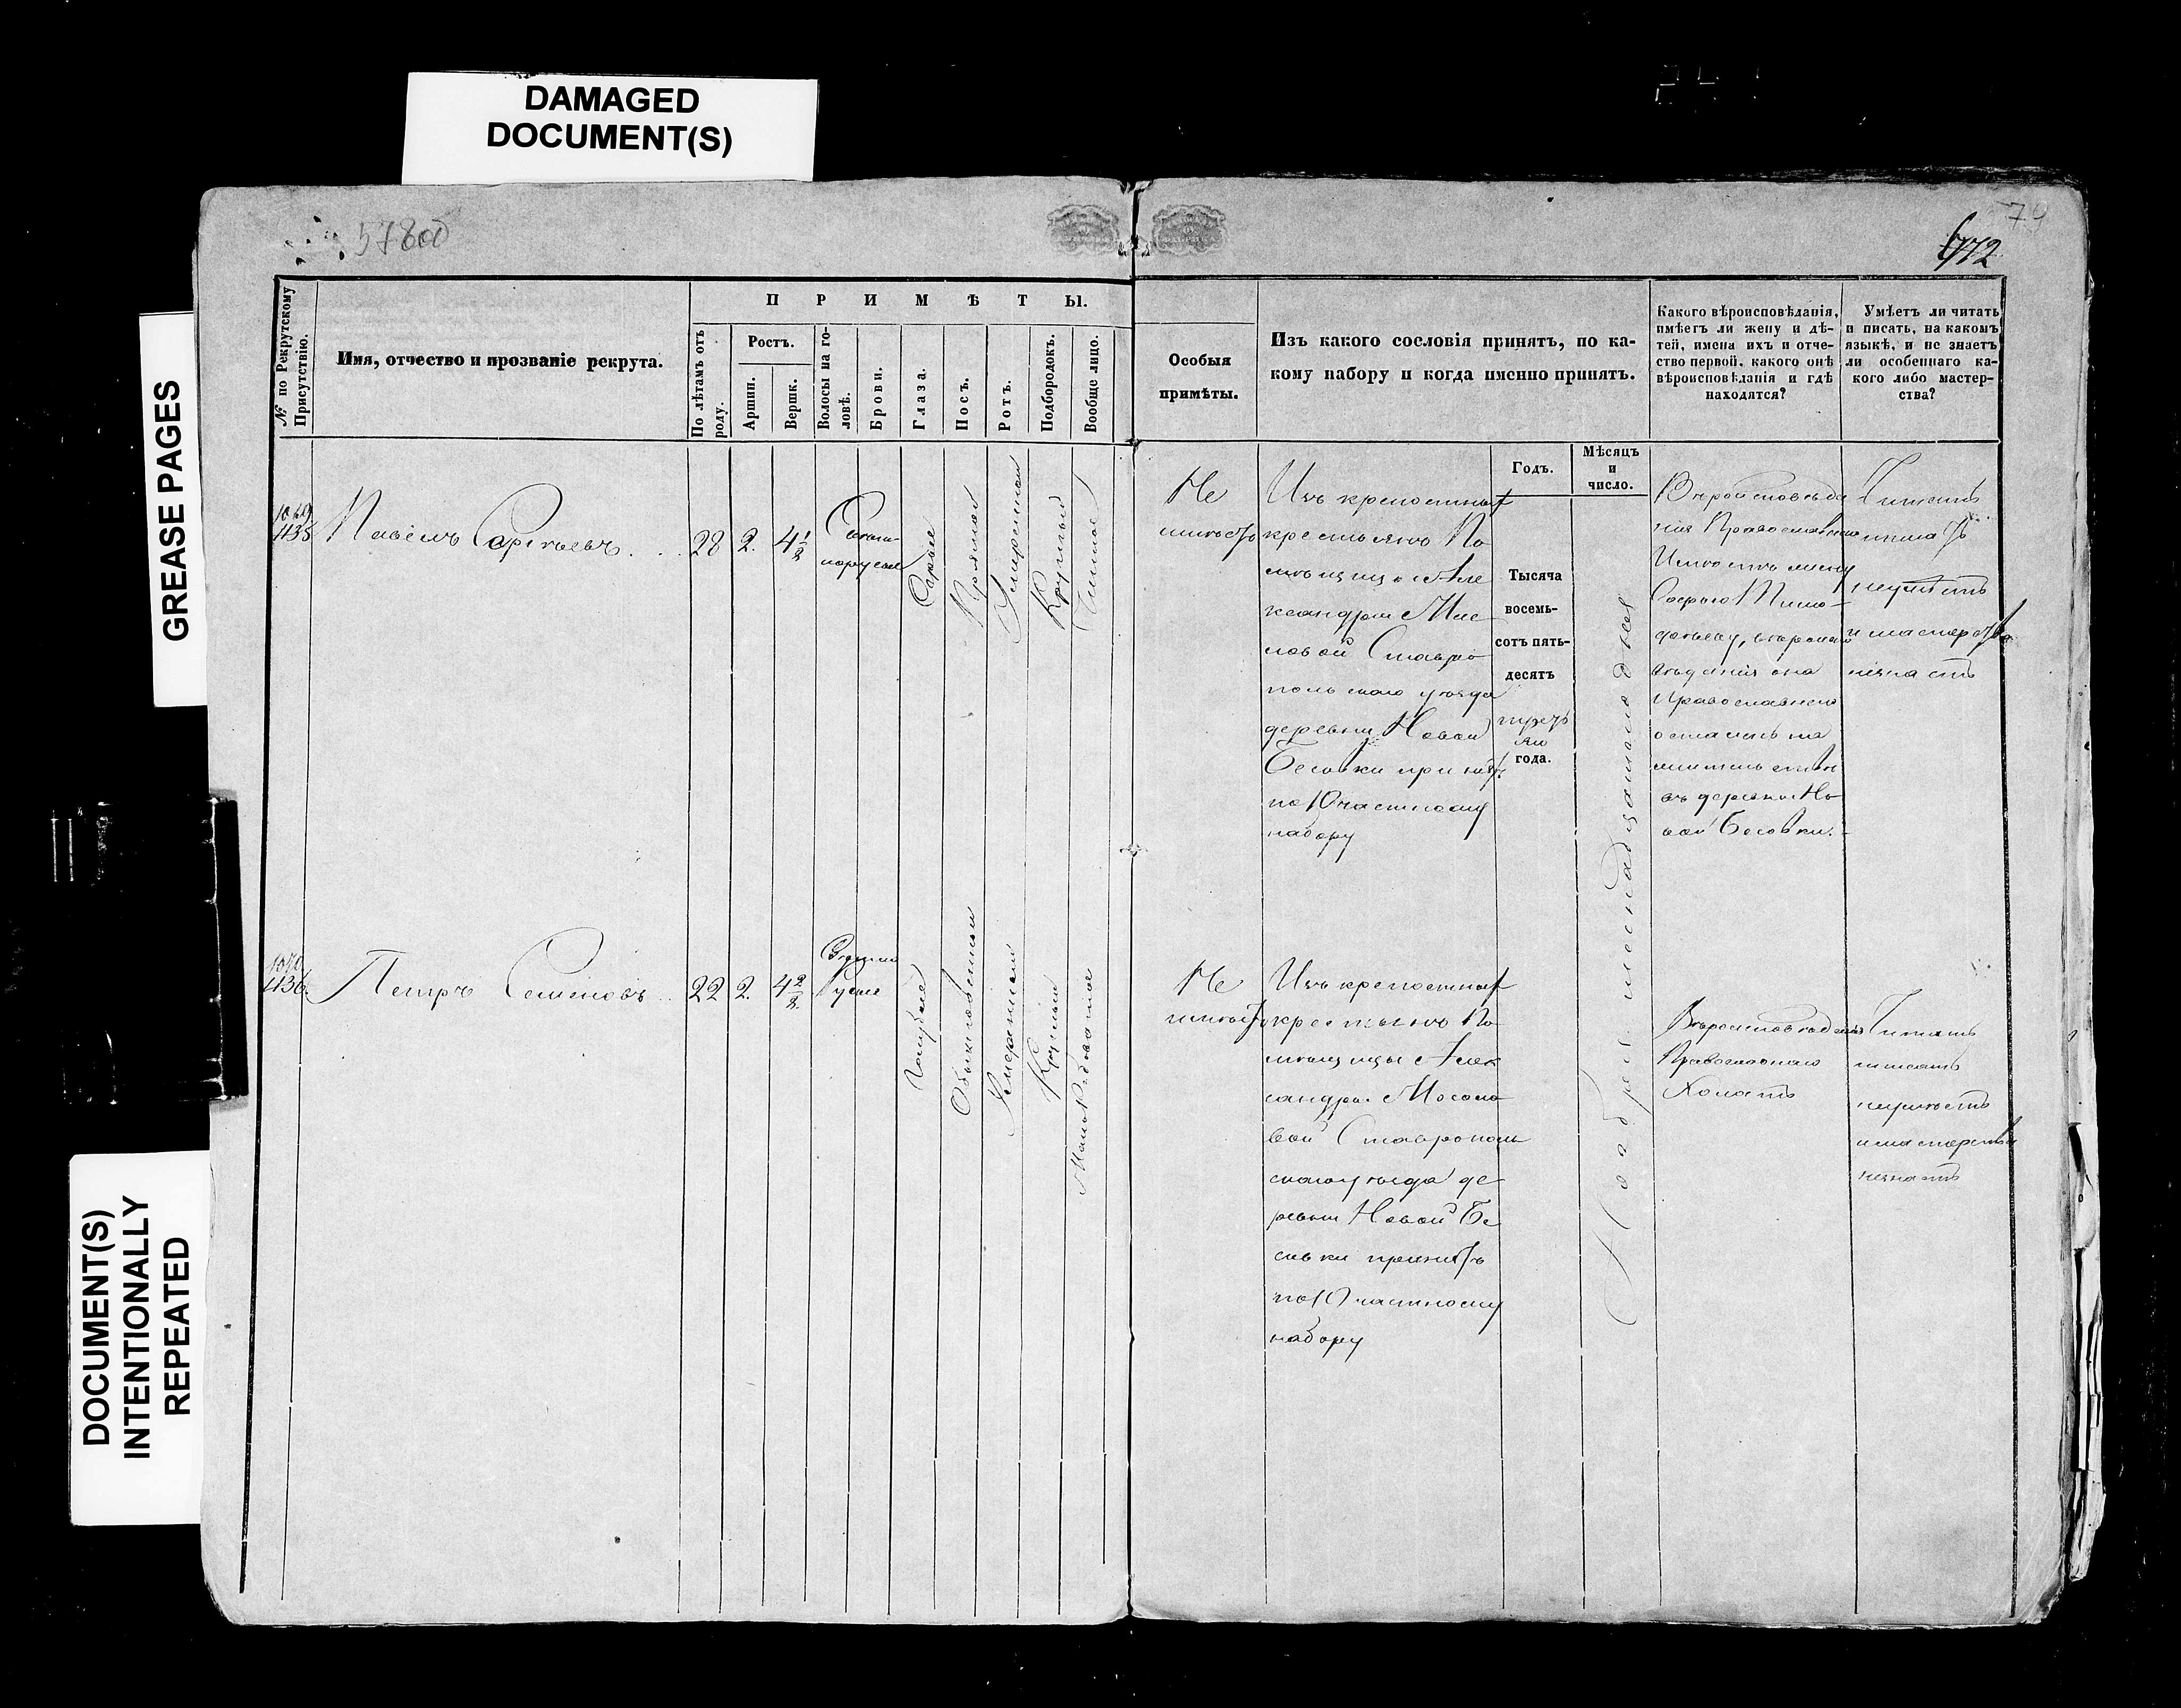 DAMAGED
DOCUMENT(S)
GREASE PAGES
DOCUMENT(S)
INTENTIONALLY
REPEATED
79
772
№ по Рекрутскому
Присутствію.
Имя, отчество и прозваніе рекрута.
ПРИМѢТЫ.
По лѣтамъ отъ
роду.
Ростъ.
Аршин.
Вершк.
Волосы на го-
ловѣ.
Брови.
Глаза.
Носъ.
Ротъ.
Подбородокъ.
Вообще лицо.
Особыя
примѣты.
Изъ какого сословія принятъ, по ка-
кому набору и когда именно принятъ.
Какого вѣроисповѣданія,
имѣетъ ли жену и дѣ-
тей, имена ихъ и отче-
ство первой, какого онѣ
вѣроисповѣданія и гдѣ
находятся?
Умѣетъ ли читать
и писать, на какомъ
языкѣ, и не знаетъ
ли особеннаго ка-
кого либо мастер-
ства?
Годъ.
Мѣсяцъ
и
число.
1069
1135
Павелъ Сергѣевъ
28
2.
4 1/8
Свѣтло-
корусые
Сѣрые
Прямой
Умеренный
Круглый
Чистое
Не
имѣетъ
Изъ крепостных
крестьянъ По
мѣщицы Але
ксандры Мос
ловой Ставро
польскаго уѣзда
деревни Новой
Бесовки принятъ
по 10 частному
набору
Тысяча
восемь-
сотъ пять-
десятъ
третья
го
года.
Ноября шестнадцатого дня
Вѣроисповѣда
ния Православнаго
Имѣетъ жену
Софью Тимо-
фееву, вѣроиспо
вѣдания она
Православнаго
осталась на
жительствѣ
въ деревни Но
вой Бесовки.
Читать
писать
неумѣетъ
и мастерства
незнаетъ
1070
1136.
Петръ Семеновъ
22
2.
4 2/8.
Темно
Русые
Голубые
Обыкновенный
Умеренный
Круглый
Малорябоватое
Не
имѣетъ
Изъ крепостных
крестьянъ По
мѣщицы Алек
сандры Мосоло
вой Ставрополь
скаго уѣзда де
ревни Новой Бе
совки принятъ
по 10 частному
набору
Вѣроисповѣдания
Православнаго
Холостъ
Читать
писать
неумѣетъ
и мастерства
незнаетъ